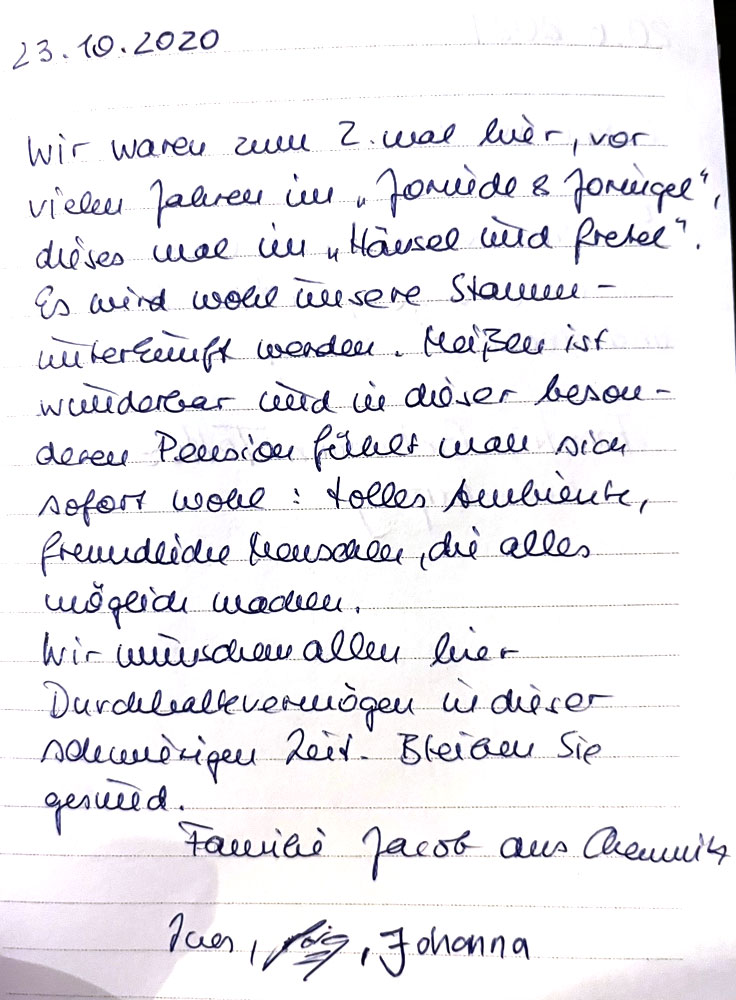 23.10.2020
Wir waren zum 2. mal hier, vor
vielen Jahren im „Jorinde & Joringel“,
dieses mal im „Hänsel und Gretel“.
Es wird wohl unsere Stamm-
unterkunft werden. Meißen ist
wunderbar und in dieser beson-
deren Pension fühlt man sich
sofort wohl: tolles Ambiente,
freundliche Menschen, die alles
möglich machen.
Wir wünschen allen hier
Durchhaltevermögen in dieser
schwierigen Zeit. Bleiben Sie
gesund.
Familie Jacob aus Chemnitz
Johanna